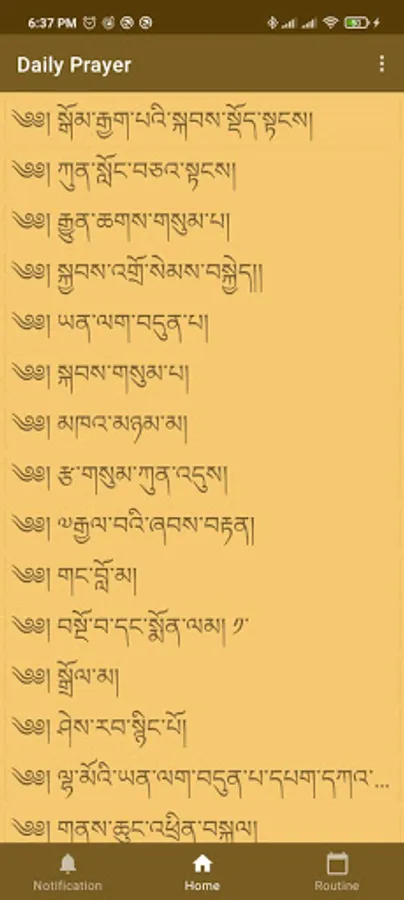 6:37 PM
Daily Prayer
༄༅། སྒོམ་རྒྱག་པའི་སྐབས་སྡོད་སྟངས།
༄༅། ཀུན་སློང་བཅའ་སྟངས།
༄༅། རྒྱུན་ཆགས་གསུམ་པ།
༄༅། སྐྱབས་འགྲོ་སེམས་བསྐྱེད།།
༄༅། ཡན་ལག་བདུན་པ།
༄༅། སྐབས་གསུམ་པ།
༄༅། མཁའ་མཉམ་མ།
༄༅། རྩ་གསུམ་ཀུན་འདུས།
༄༅། ༧རྒྱལ་བའི་ཞབས་བརྟན།
༄༅། གང་བློ་མ།
༄༅། བསྔོ་བ་དང་སྨོན་ལམ། ༡་
༄༅། སྒྲོལ་མ།
༄༅། ཤེས་རབ་སྙིང་པོ།
༄༅། ལྷ་མོའི་ཡན་ལག་བདུན་པ་དཔག་དཀའ་...
༄༅། གནས་ཆུང་འཕྲིན་བསྐུལ།
Notification
Home
Routine